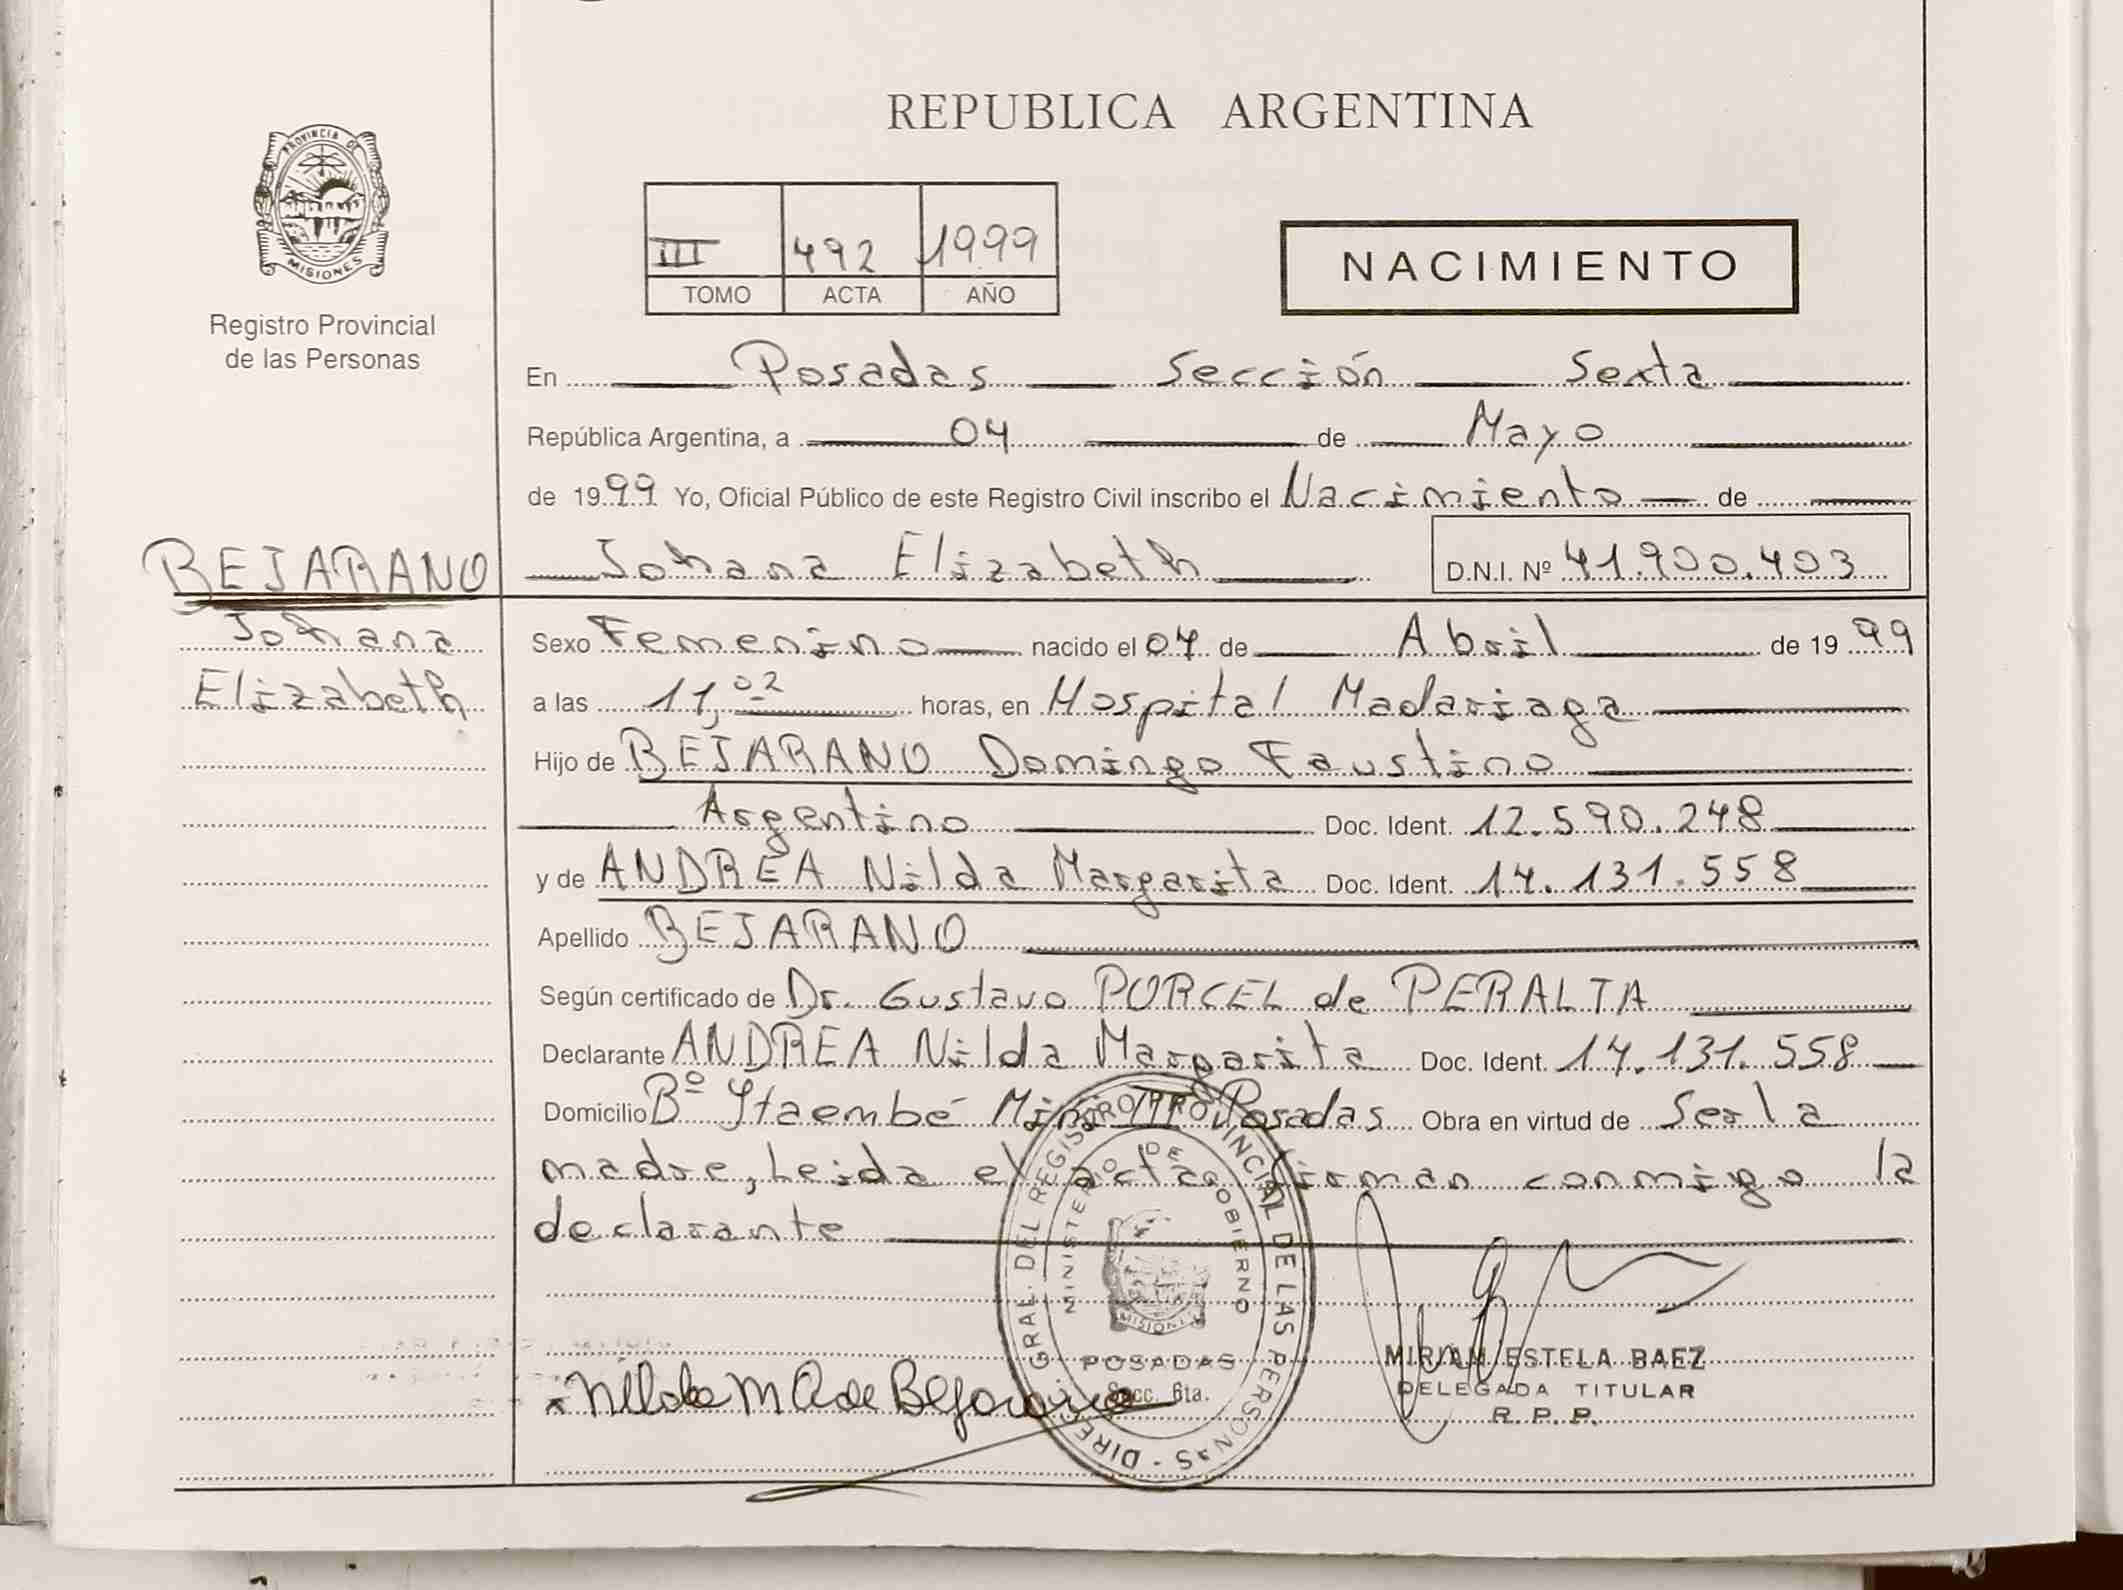 REPUBLICA ARGENTINA
PROVINCIA DE MISIONES
Registro Provincial
de las Personas
III 492 1999
TOMO ACTA AÑO
NACIMIENTO
En Posadas Sección Sexta
República Argentina, a 04 de Mayo
de 1999 Yo, Oficial Público de este Registro Civil inscribo el Nacimiento de
BEJARANO Johana Elizabeth D.N.I. Nº 41.900.403
Johana
Elizabeth
Sexo Femenino nacido el 07 de Abril de 1999
a las 11,02 horas, en Hospital Madariaga
Hijo de BEJARANO Domingo Faustino
Argentino Doc. Ident. 12.590.248
y de ANDREA Nilda Margarita Doc. Ident. 14.131.558
Apellido BEJARANO
Según certificado de Dr. Gustavo PORCEL de PERALTA
Declarante ANDREA Nilda Margarita Doc. Ident. 14.131.558
Domicilio Bº Ytaembé Miní III Posadas Obra en virtud de Ser la
madre, Leida el acta firman conmigo la
declarante
DIREC. GRAL. DEL REGISTRO PROVINCIAL DE LAS PERSONAS
MINISTERIO DE GOBIERNO
MISIONES
POSADAS
Secc. 6ta.
Nilda M A de Bejarano
MIRIAN ESTELA BAEZ
DELEGADA TITULAR
R.P.P.